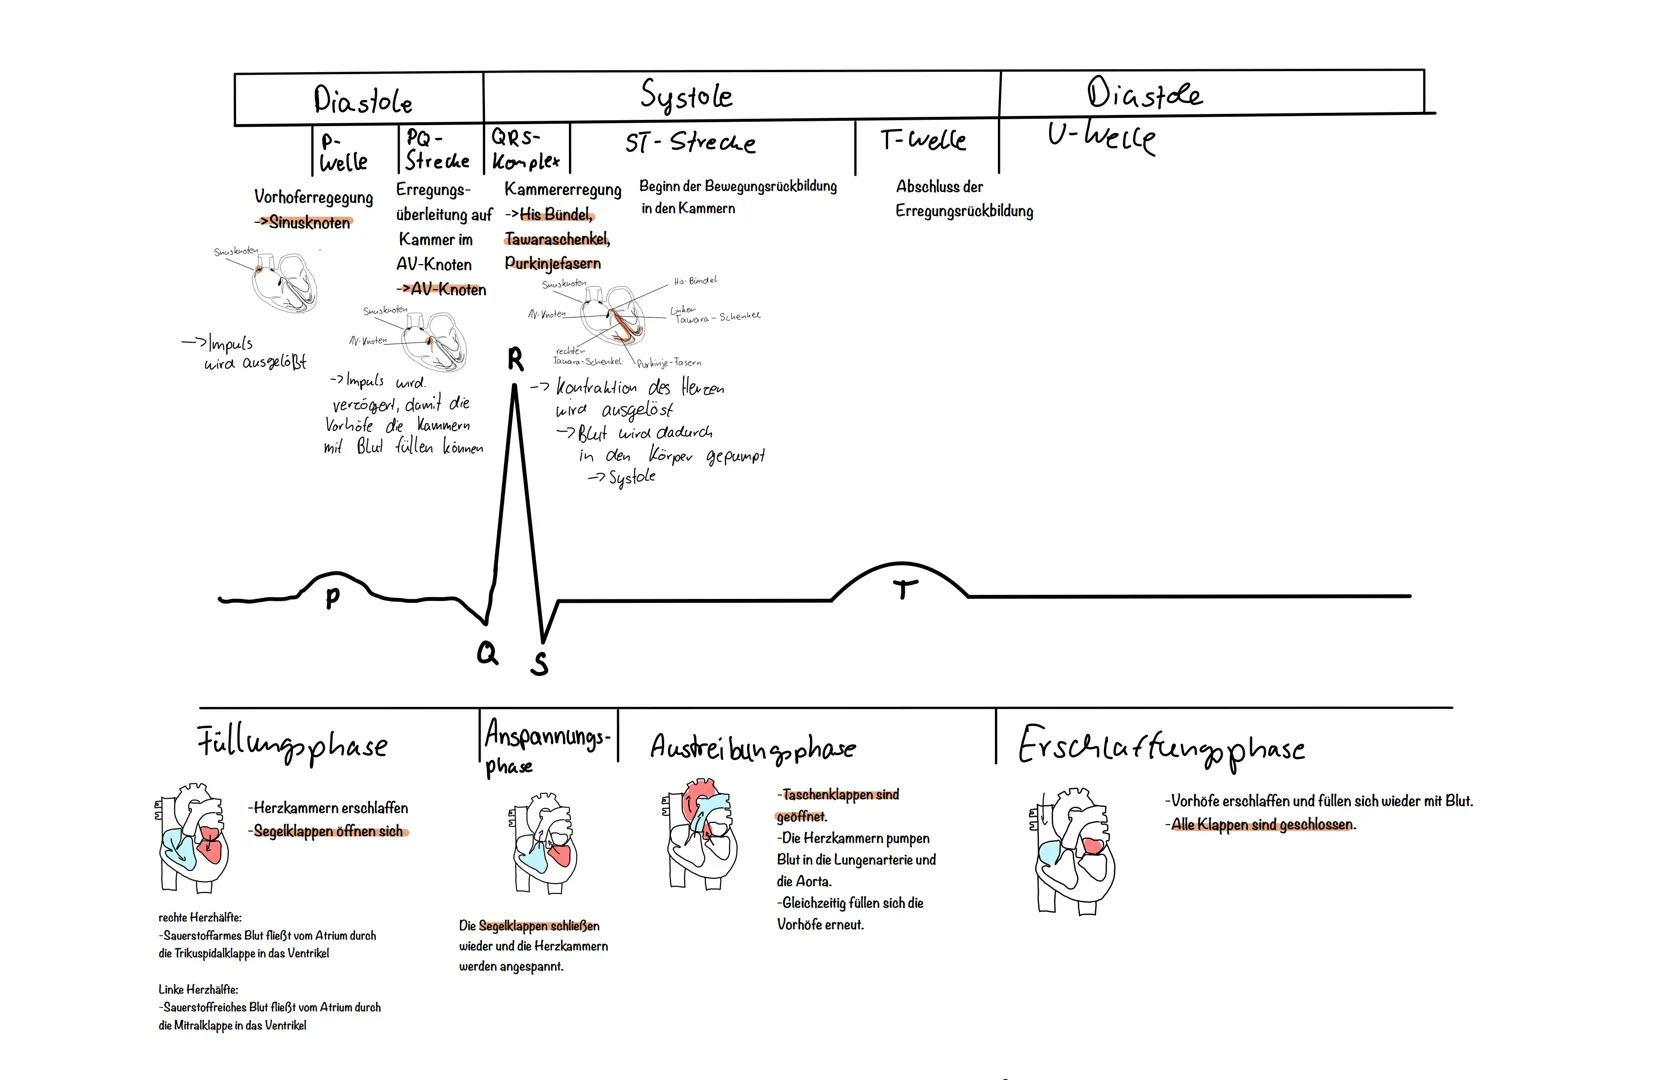 Diastole
Systole
Diastole
P-
Welle
PQ-
Strecke
QRS-
Komplex
ST-Strecke
T-Welle
U-Welle
Vorhoferregegung
->Sinusknoten
Erregungs-
überleitung auf
Kammer im
AV-Knoten
->AV-Knoten
Kammererregung
->His Bündel,
Tawaraschenkel,
Purkinjefasern
Beginn der Bewegungsrückbildung
in den Kammern
Abschluss der
Erregungsrückbildung
Sinusknoten
->Impuls
wird ausgelößt
Sinusknoten
AV-Knoten
->Impuls wird
verzögert, damit die
Vorhöfe die Kammern
mit Blut füllen können
Sinusknoten
AV-Knoten
His-Bündel
Linker
Tawara-Schenkel
rechter
Tawara-Schenkel
Purkinje-Fasern
-> Kontraktion des Herzen
wird ausgelöst
->Blut wird dadurch
in den Körper gepumpt
-> Systole
R
P
Q
S
T
Füllungsphase
Anspannungs-
phase
Austreibungsphase
Erschlaffungsphase
-Herzkammern erschlaffen
-Segelklappen öffnen sich
rechte Herzhälfte:
-Sauerstoffarmes Blut fließt vom Atrium durch
die Trikuspidalklappe in das Ventrikel
Linke Herzhälfte:
-Sauerstoffreiches Blut fließt vom Atrium durch
die Mitralklappe in das Ventrikel
Die Segelklappen schließen
wieder und die Herzkammern
werden angespannt.
-Taschenklappen sind
geöffnet.
-Die Herzkammern pumpen
Blut in die Lungenarterie und
die Aorta.
-Gleichzeitig füllen sich die
Vorhöfe erneut.
-Vorhöfe erschlaffen und füllen sich wieder mit Blut.
-Alle Klappen sind geschlossen.